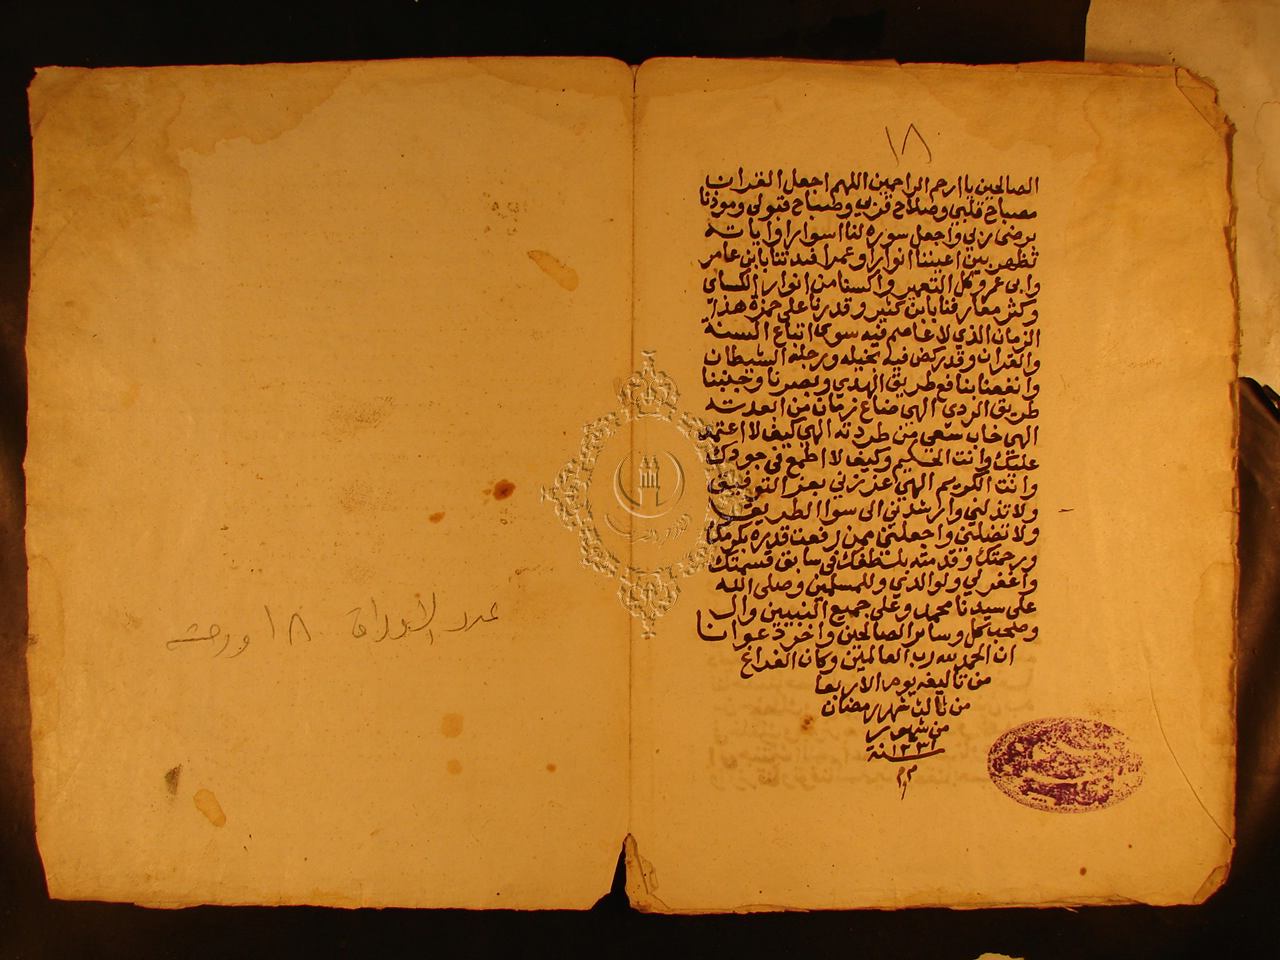 ١٨
الصالحين يا ارحم الراحمين اللهم اجعل القران
مصباح قلبي وصلاح قربي وصباح قبولي وموذنا
برضى ربي واجعل سوره لنا اسوارا واياته
تظهر بين اعيننا انوارا وعمرا فيدتنا بابن عامر
وابى عمرو كل التعمير واكسنا من انوار الكساى
وكثر معارفنا بابن كثير وقدرنا على حمزة هذا
الزمان الذي لا عاصم فيه سوى اتباع السنة
والقران وقد ركض فيه بخيله ورجله الشيطان
وانفعنا بنافع طريق الهدي وبصرنا وجنبنا
طريق الردي الهي ضاع زمان من ابعدته
الهي خاب سعي من طردته الهي كيف لا اعتمد
عليك وانت الحكيم وكيف لا اطمع في جودك
وانت الكريم الهي عززني بعز التوفيق
ولا تذلني وارشدني الى سوا الطريق
ولا تضلني واجعلني ممن رفعت قدره بكرمك
ورحمتك وقدمته بلطفك في سابق قسمتك
واغفر لي ولوالدي وللمسلمين وصلى الله
على سيدنا محمد وعلى جميع النبيين وال
وصحب كل وساير الصالحين واخر دعوانا
ان الحمد لله رب العالمين وكان الفراغ
من تاليفه يوم الاربعا
من ثالث شهر رمضان
من شهور
سنة ١٢٣٢
عدد الاوراق ١٨ ورقة